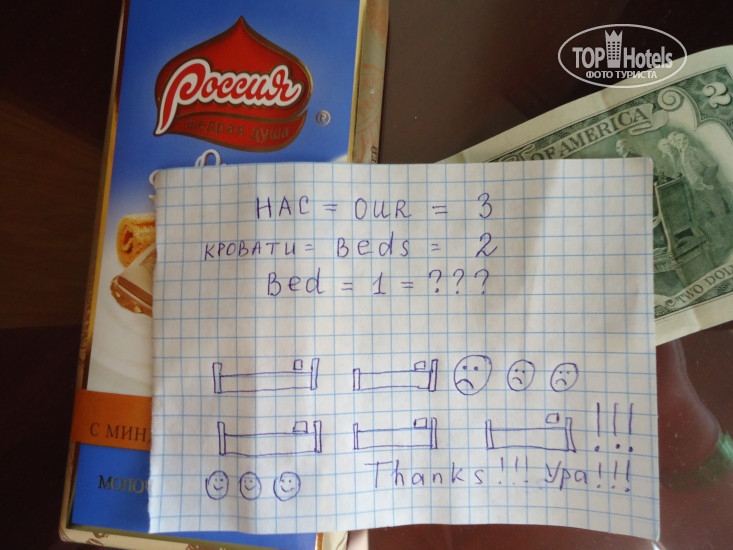 TOP Hotels
ФОТО ТУРИСТА
Россия
щедрая душа
®
2
OF AMERICA
TWO DOL
НАС = OUR = 3
КРОВАТИ = Beds = 2
Bed = 1 = ???
!!!
Thanks!!! Ура!!!
С МИН
МОЛОЧ